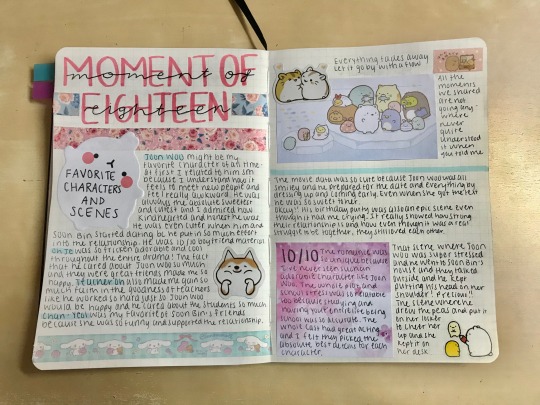 MOMENT OF
moment of
EIGHTEEN
eighteen
FAVORITE
CHARACTERS
AND
SCENES
Joon Woo might be my
favorite character of all time.
At first I related to him
because I understand how it
feels to meet new people and
feel really awkward. He was
always the absolute sweetest
and cutest and I admired how
kindhearted and honest he was.
He was even cuter when him and
Soon Bin started dating bc he put in so much effort
into the relationship. He was 10/10 boyfriend material.
Oh Je was so frickën adorable and cool
throughout the entire drama! The fact
that he cared about Joon Woo so much
and they were great friends made me so
happy. Teacher Oh also made me gain so
much faith in the goodness of teachers
like he worked so hard just so Joon Woo
would be happy and he cared about the students so much
Chan-Yeol was my favorite of Soo Bin's friends
because she was so funny and supported the relationship.
Everything fades away
Let it go by with a flow
All the
moments
we shared
are not
going any-
where
never
quite
understood
it when
you told me
The movie date was so cute because Joon Woo was all
smiley and he prepared for the date and everything by
dressing up and coming early. Even when she got the text
he was so sweet to her.
Okay! His birthday party was also an epic scene even
though it had me crying. It really showed how strong
their relationship is and how even though it was a real
struggle to be together, they should led each other.
10/10 The romance was
so unique because
I've never seen such an
adorable character like Joon
Woo. The whole plot and
school stress was so relatable
bc studying and
having your entire life being
school was so accurate. The
whole cast had great acting
and I felt they picked the
absolute best actors for each
character.
That scene where Joon
Woo was super stressed
and he went to Soon Bin's
house and they talked
outside and he kept
putting his head on her
shoulder! Precious!!
The scene where he
drew the peas and put it
on her locker
to cheer her
up and she
kept it on
her desk